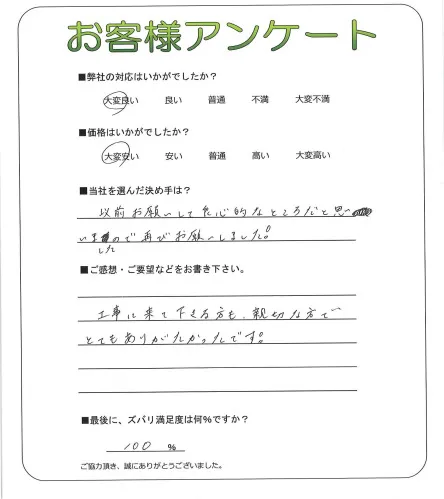 お客様アンケート
■弊社の対応はいかがでしたか？
大変良い 良い 普通 不満 大変不満
■価格はいかがでしたか？
大変安い 安い 普通 高い 大変高い
■当社を選んだ決め手は？
以前お願いして良心的なところだと思い
いましたので再びお願いしました!
■ご感想・ご要望などをお書き下さい。
工事に来て下さる方も、親切な方で
とてもありがたかったです!
■最後に、ズバリ満足度は何％ですか？
100 ％
ご協力頂き、誠にありがとうございました。